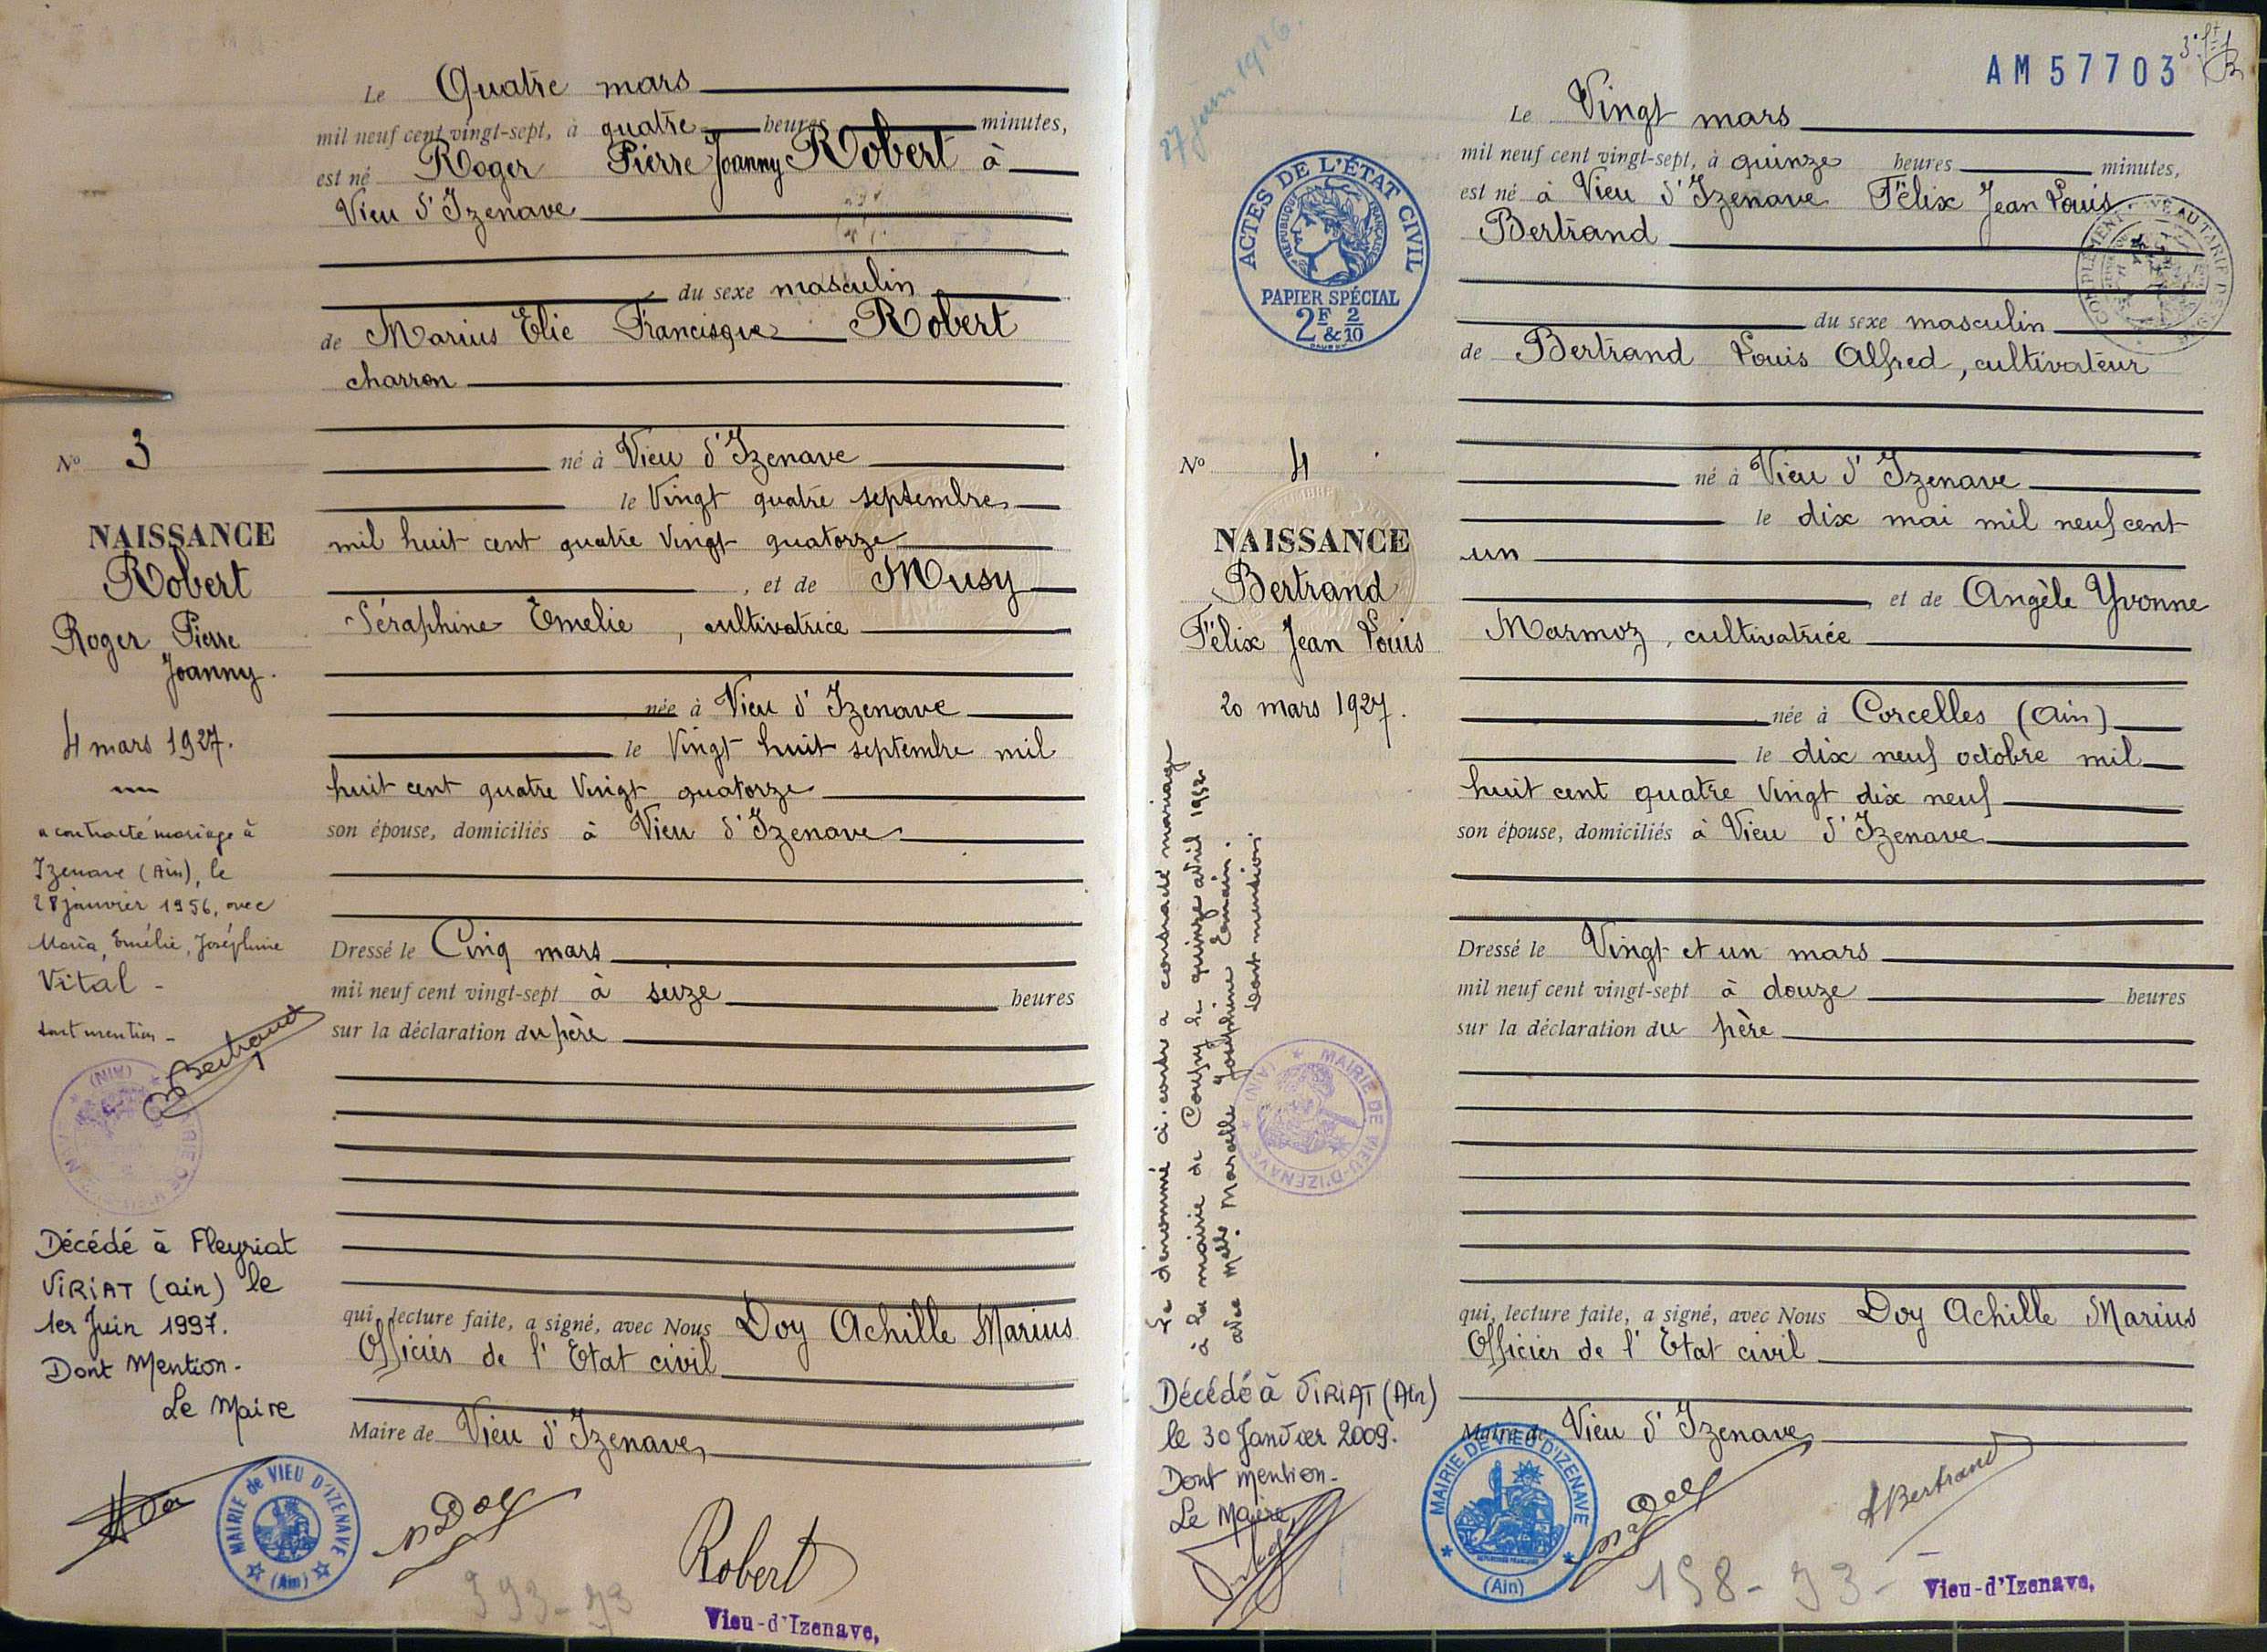 Le Quatre mars
mil neuf cent vingt-sept, à quatre heures minutes,
est né Roger Pierre Joanny Robert à
Vieu d'Izenave
du sexe masculin
de Marius Elie Francisque Robert
charron
né à Vieu d'Izenave
le Vingt quatre septembre
mil huit cent quatre vingt quatorze
, et de Musy
Séraphine Emelie, cultivatrice
née à Vieu d'Izenave
le Vingt huit septembre mil
huit cent quatre vingt quatorze
son épouse, domiciliés à Vieu d'Izenave
Dressé le Cinq mars
mil neuf cent vingt-sept à seize heures
sur la déclaration du père
qui, lecture faite, a signé, avec Nous Doy Achille Marius
Officier de l'Etat civil
Maire de Vieu d'Izenave
Doy
Robert
Vieu-d'Izenave,
No 3
NAISSANCE
Robert
Roger Pierre
Joanny.
4 mars 1927.
a contracté mariage à
Izenave (Ain), le
28 janvier 1956, avec
Maria, Emélie, Joséphine
Vital -
dont mention -
Bertrand
Décédé à Fleyriat
VIRIAT (ain) le
1er Juin 1997.
Dont Mention -
Le Maire
MAIRIE de VIEU D'IZENAVE
(Ain)
27 juin 1926.
AM 57703
ACTES DE L'ÉTAT CIVIL
RÉPUBLIQUE FRANÇAISE
PAPIER SPÉCIAL
2F & 2/10
Le Vingt mars
mil neuf cent vingt-sept, à quinze heures minutes,
est né à Vieu d'Izenave Félix Jean Louis
Bertrand
du sexe masculin
de Bertrand Louis Alfred, cultivateur
né à Vieu d'Izenave
le dix mai mil neuf cent
un
, et de Angèle Yvonne
Marmoz, cultivatrice
née à Corcelles (Ain)
le dix neuf octobre mil
huit cent quatre vingt dix neuf
son épouse, domiciliés à Vieu d'Izenave
Dressé le Vingt et un mars
mil neuf cent vingt-sept à douze heures
sur la déclaration du père
qui, lecture faite, a signé, avec Nous Doy Achille Marius
Officier de l'Etat civil
Maire de Vieu d'Izenave
Doy
Bertrand
Vieu-d'Izenave,
No 4
NAISSANCE
Bertrand
Félix Jean Louis
20 mars 1927.
Le dénommé ci-contre a contracté mariage
à la mairie de le quinze avril
avec Melle Marcelle Joséphine
Dont mention.
MAIRIE DE VIEU-D'IZENAVE
(AIN)
Décédé à VIRIAT (Ain)
le 30 Janvier 2009.
Dont mention -
Le Maire,
MAIRIE DE VIEU D'IZENAVE
(Ain)